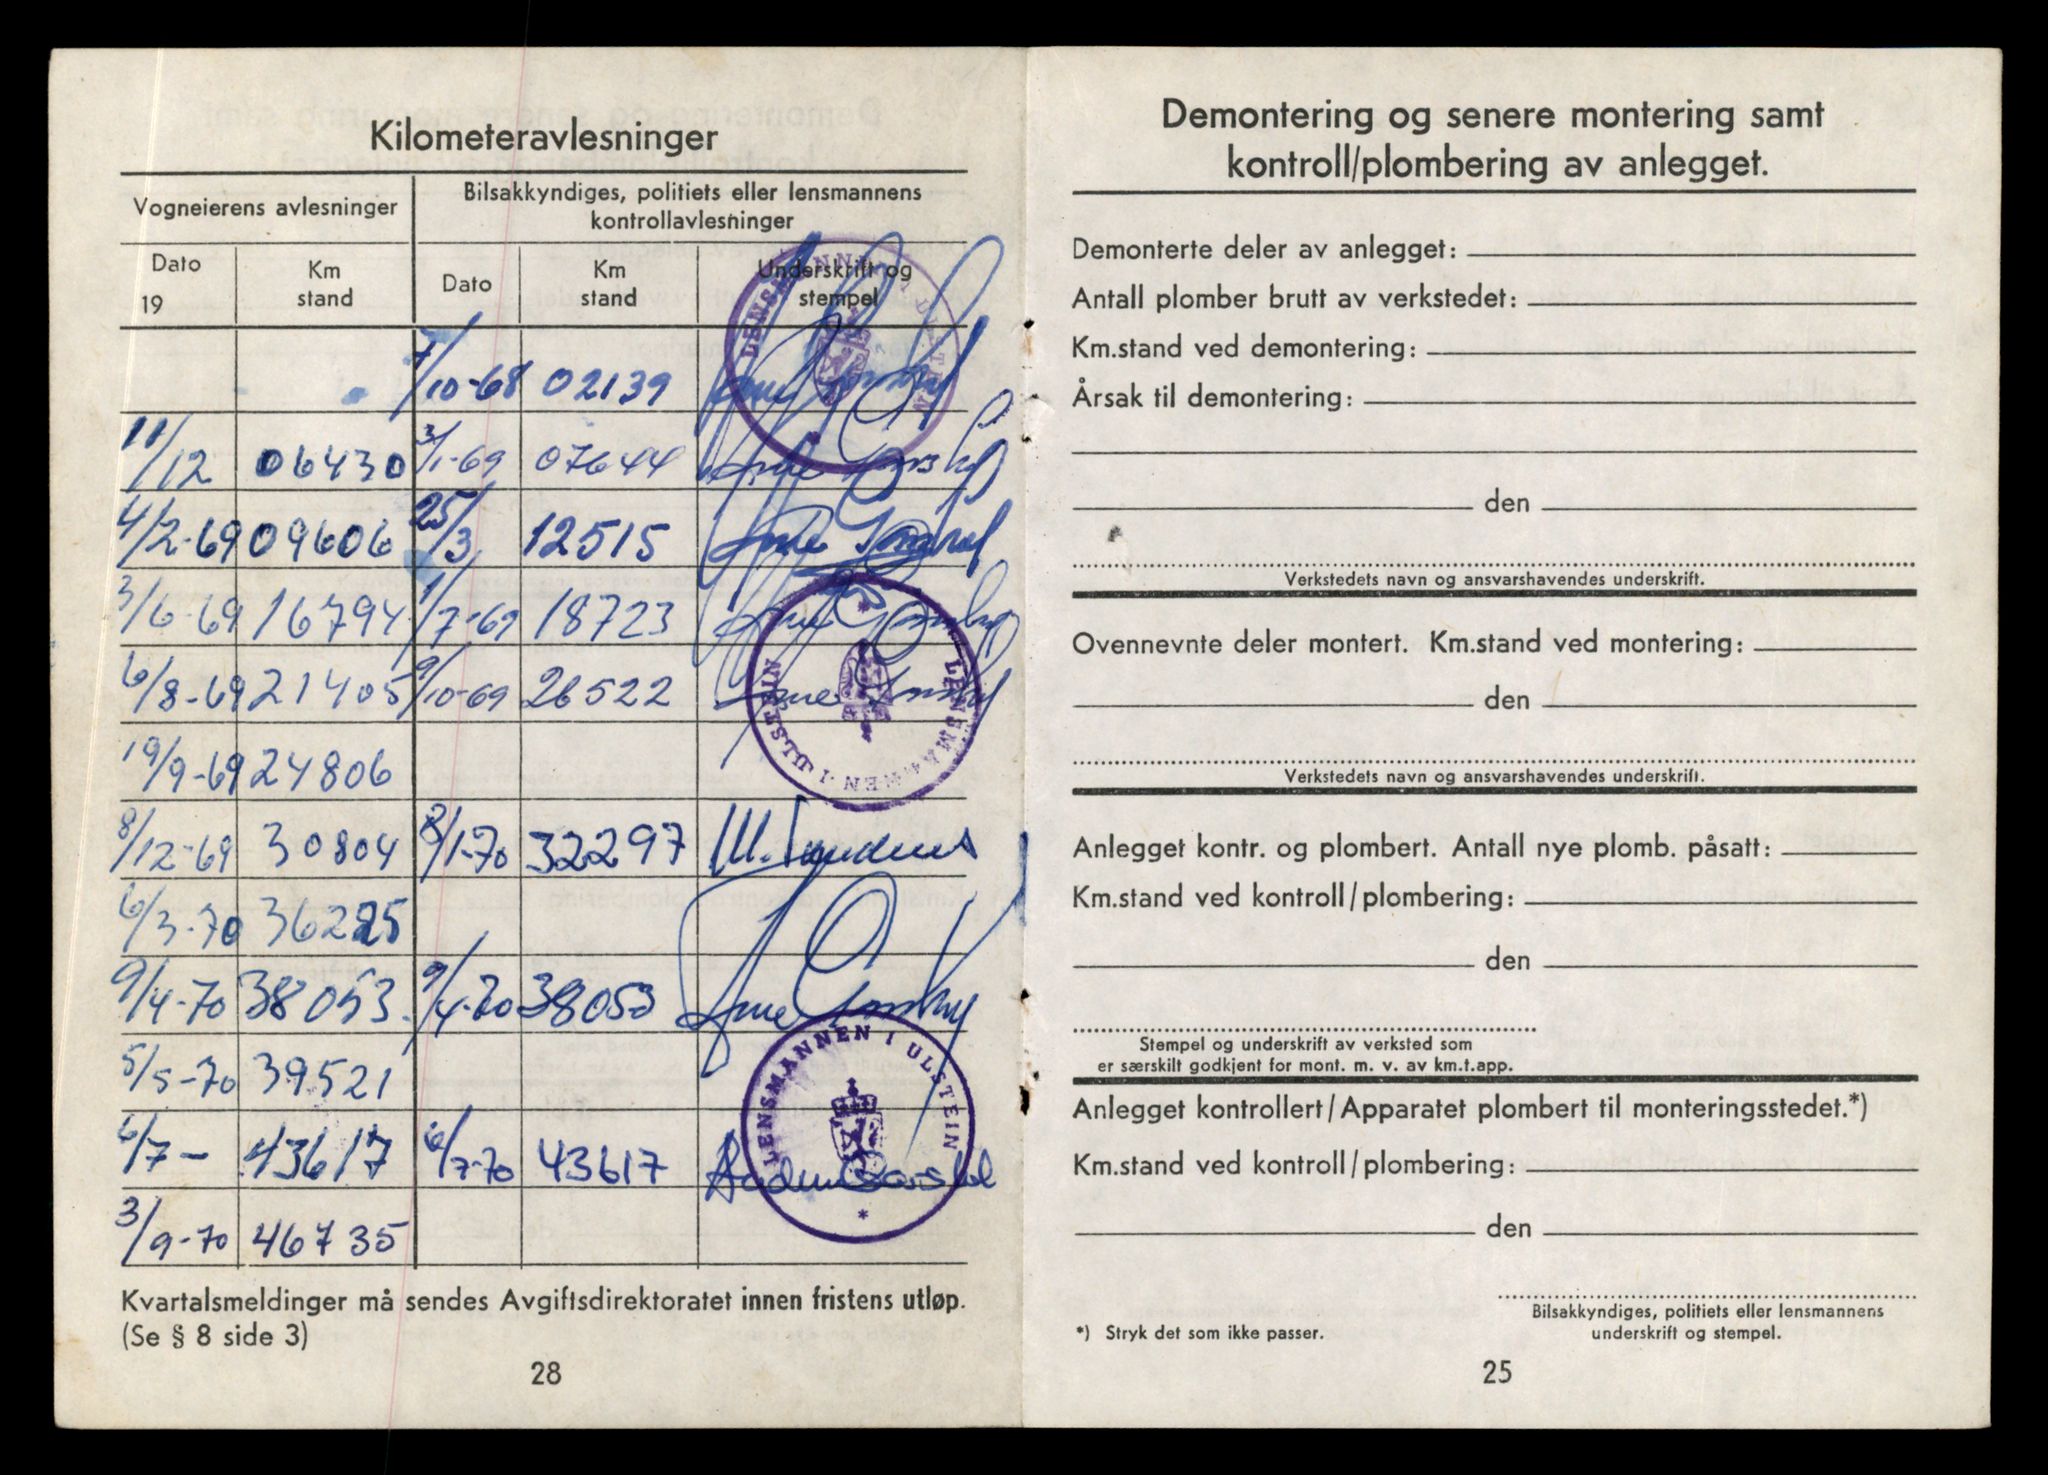 Kilometeravlesninger
Vogneierens avlesninger
Bilsakkyndiges, politiets eller lensmannens
kontrollavlesninger
Dato
19
Km
stand
Dato
Km
stand
Underskrift og
stempel
7/10-68 02139
11/12 06430 3/1-69 07644
4/2-69 09606 25/3 12515
3/6-69 16794 1/7-69 18723
6/8-69 21405 9/10-69 26522
19/9-69 24806
8/12-69 30804 8/1-70 32297
6/3-70 36225
9/4-70 38053 9/4-70 38053
5/5-70 39521
6/7- 43617 6/7-70 43617
3/9-70 46735
LENSMANNEN I ULSTEIN
LENSMANNEN I ULSTEIN
LENSMANNEN I ULSTEIN
Kvartalsmeldinger må sendes Avgiftsdirektoratet innen fristens utløp.
(Se § 8 side 3)
28
Demontering og senere montering samt
kontroll/plombering av anlegget.
Demonterte deler av anlegget:
Antall plomber brutt av verkstedet:
Km.stand ved demontering:
Årsak til demontering:
den
Verkstedets navn og ansvarshavendes underskrift.
Ovennevnte deler montert. Km.stand ved montering:
den
Verkstedets navn og ansvarshavendes underskrift.
Anlegget kontr. og plombert. Antall nye plomb. påsatt:
Km.stand ved kontroll/plombering:
den
Stempel og underskrift av verksted som
er særskilt godkjent for mont. m. v. av km.t.app.
Anlegget kontrollert/Apparatet plombert til monteringsstedet.*)
Km.stand ved kontroll/plombering:
den
Bilsakkyndiges, politiets eller lensmannens
underskrift og stempel.
*) Stryk det som ikke passer.
25